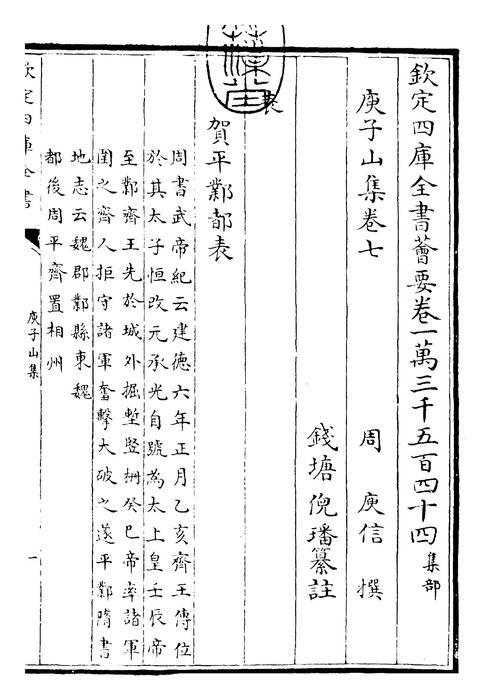 欽定四庫全書薈要卷一萬三千五百四十四集部
庾子山集卷七
周 庾信 撰
錢塘倪璠纂註
表
賀平鄴都表
周書武帝紀云建德六年正月乙亥齊王傳位
於其太子恒改元承光自號為太上皇壬辰帝
至鄴齊王先於城外掘塹竪柵癸巳帝率諸軍
圍之齊人拒守諸軍奮擊大破之遂平鄴隋書
地志云魏郡鄴縣東魏
都後周平齊置相州
欽定四庫全書
庾子山集
一